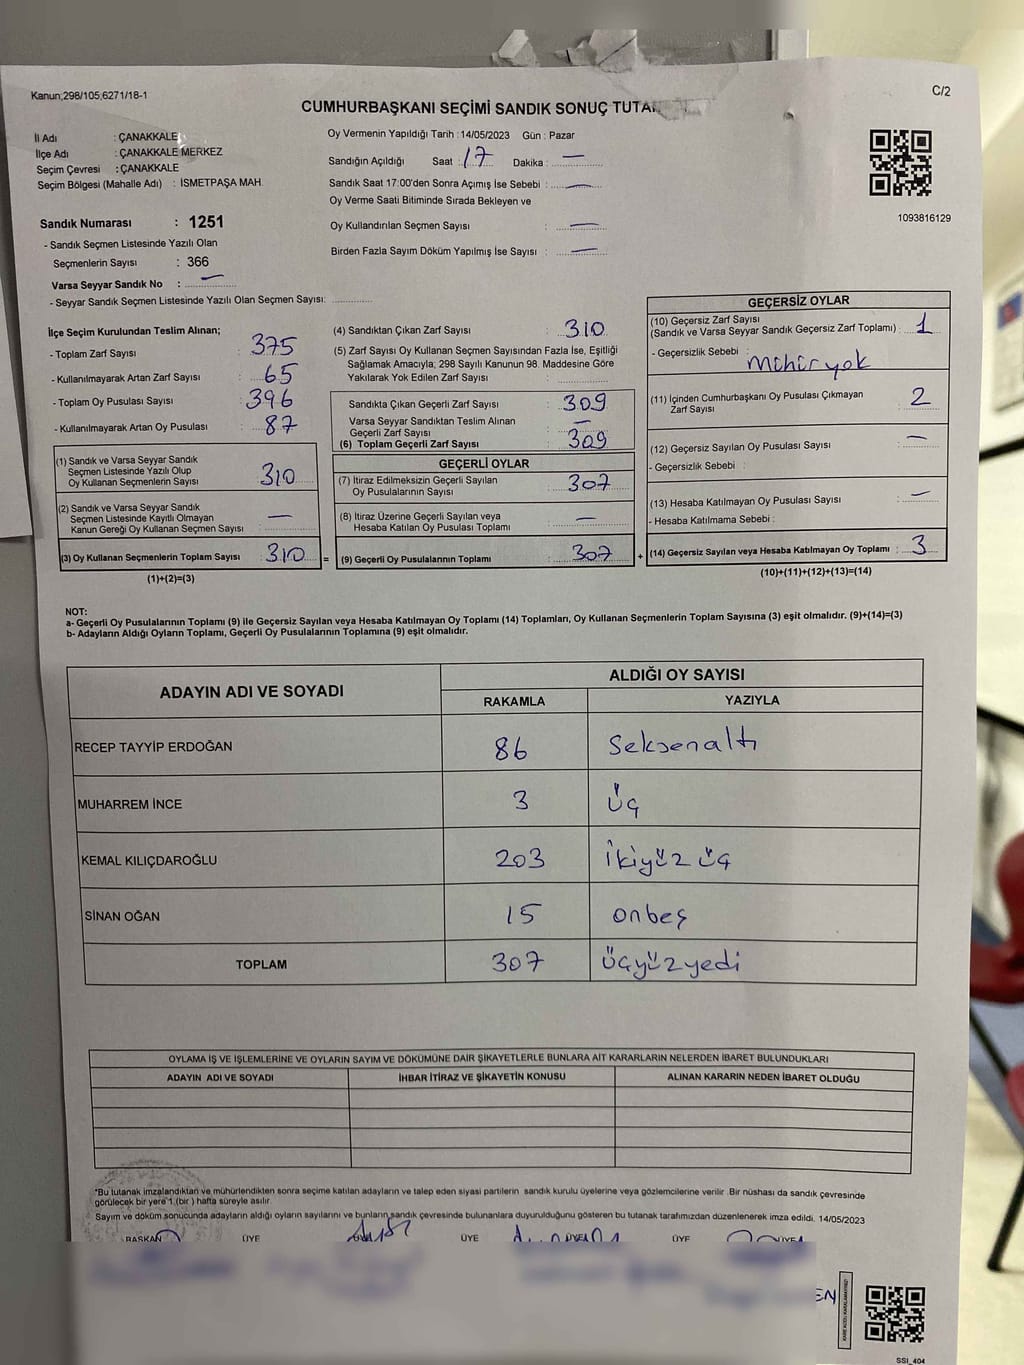 Kanun;298/105,6271/18-1
C/2
CUMHURBAŞKANI SEÇİMİ SANDIK SONUÇ
İl Adı : ÇANAKKALE
İlçe Adı : ÇANAKKALE MERKEZ
Seçim Çevresi : ÇANAKKALE
Seçim Bölgesi (Mahalle Adı) : İSMETPAŞA MAH.
Oy Vermenin Yapıldığı Tarih : 14/05/2023 Gün : Pazar
Sandığın Açıldığı Saat : 17 Dakika : —
Sandık Saat 17:00'den Sonra Açımış İse Sebebi : —
Oy Verme Saati Bitiminde Sırada Bekleyen ve
Oy Kullandırılan Seçmen Sayısı : —
Birden Fazla Sayım Döküm Yapılmış İse Sayısı : —
1093816129
Sandık Numarası : 1251
- Sandık Seçmen Listesinde Yazılı Olan
Seçmenlerin Sayısı : 366
Varsa Seyyar Sandık No : —
- Seyyar Sandık Seçmen Listesinde Yazılı Olan Seçmen Sayısı:
İlçe Seçim Kurulundan Teslim Alınan;
- Toplam Zarf Sayısı : 375
- Kullanılmayarak Artan Zarf Sayısı : 65
- Toplam Oy Pusulası Sayısı : 396
- Kullanılmayarak Artan Oy Pusulası : 87
(1) Sandık ve Varsa Seyyar Sandık
Seçmen Listesinde Yazılı Olup
Oy Kullanan Seçmenlerin Sayısı : 310
(2) Sandık ve Varsa Seyyar Sandık
Seçmen Listesinde Kayıtlı Olmayan
Kanun Gereği Oy Kullanan Seçmen Sayısı : —
(3) Oy Kullanan Seçmenlerin Toplam Sayısı : 310
(1)+(2)=(3)
(4) Sandıktan Çıkan Zarf Sayısı : 310
(5) Zarf Sayısı Oy Kullanan Seçmen Sayısından Fazla İse, Eşitliği
Sağlamak Amacıyla; 298 Sayılı Kanunun 98. Maddesine Göre
Yakılarak Yok Edilen Zarf Sayısı :
Sandıkta Çıkan Geçerli Zarf Sayısı : 309
Varsa Seyyar Sandıktan Teslim Alınan
Geçerli Zarf Sayısı : —
(6) Toplam Geçerli Zarf Sayısı : 309
GEÇERLİ OYLAR
(7) İtiraz Edilmeksizin Geçerli Sayılan
Oy Pusulalarının Sayısı : 307
(8) İtiraz Üzerine Geçerli Sayılan veya
Hesaba Katılan Oy Pusulası Toplamı : —
= (9) Geçerli Oy Pusulalarının Toplamı : 307 +
GEÇERSİZ OYLAR
(10) Geçersiz Zarf Sayısı
(Sandık ve Varsa Seyyar Sandık Geçersiz Zarf Toplamı) : 1
- Geçersizlik Sebebi : Mühür yok
(11) İçinden Cumhurbaşkanı Oy Pusulası Çıkmayan
Zarf Sayısı : 2
(12) Geçersiz Sayılan Oy Pusulası Sayısı : —
- Geçersizlik Sebebi :
(13) Hesaba Katılmayan Oy Pusulası Sayısı : —
- Hesaba Katılmama Sebebi :
(14) Geçersiz Sayılan veya Hesaba Katılmayan Oy Toplamı : 3
(10)+(11)+(12)+(13)=(14)
NOT:
a- Geçerli Oy Pusulalarının Toplamı (9) ile Geçersiz Sayılan veya Hesaba Katılmayan Oy Toplamı (14) Toplamları, Oy Kullanan Seçmenlerin Toplam Sayısına (3) eşit olmalıdır. (9)+(14)=(3)
b- Adayların Aldığı Oyların Toplamı, Geçerli Oy Pusulalarının Toplamına (9) eşit olmalıdır.
ADAYIN ADI VE SOYADI
ALDIĞI OY SAYISI
RAKAMLA YAZIYLA
RECEP TAYYİP ERDOĞAN 86 Seksenaltı
MUHARREM İNCE 3 Üç
KEMAL KILIÇDAROĞLU 203 İkiyüz üç
SİNAN OĞAN 15 onbeş
TOPLAM 307 Üçyüzyedi
OYLAMA İŞ VE İŞLEMLERİNE VE OYLARIN SAYIM VE DÖKÜMÜNE DAİR ŞİKAYETLERLE BUNLARA AİT KARARLARIN NELERDEN İBARET BULUNDUKLARI
ADAYIN ADI VE SOYADI İHBAR İTİRAZ VE ŞİKAYETİN KONUSU ALINAN KARARIN NEDEN İBARET OLDUĞU
*Bu tutanak imzalandıktan ve mühürlendikten sonra seçime katılan adayların ve talep eden siyasi partilerin sandık kurulu üyelerine veya gözlemcilerine verilir. Bir nüshası da sandık çevresinde
görülecek bir yere 1 (bir) hafta süreyle asılır.
Sayım ve döküm sonucunda adayların aldığı oyların sayılarını ve bunların sandık çevresinde bulunanlara duyurulduğunu gösteren bu tutanak tarafımızdan düzenlenerek imza edildi. 14/05/2023
BAŞKAN ÜYE ÜYE ÜYE ÜYE
EN
SSI_404